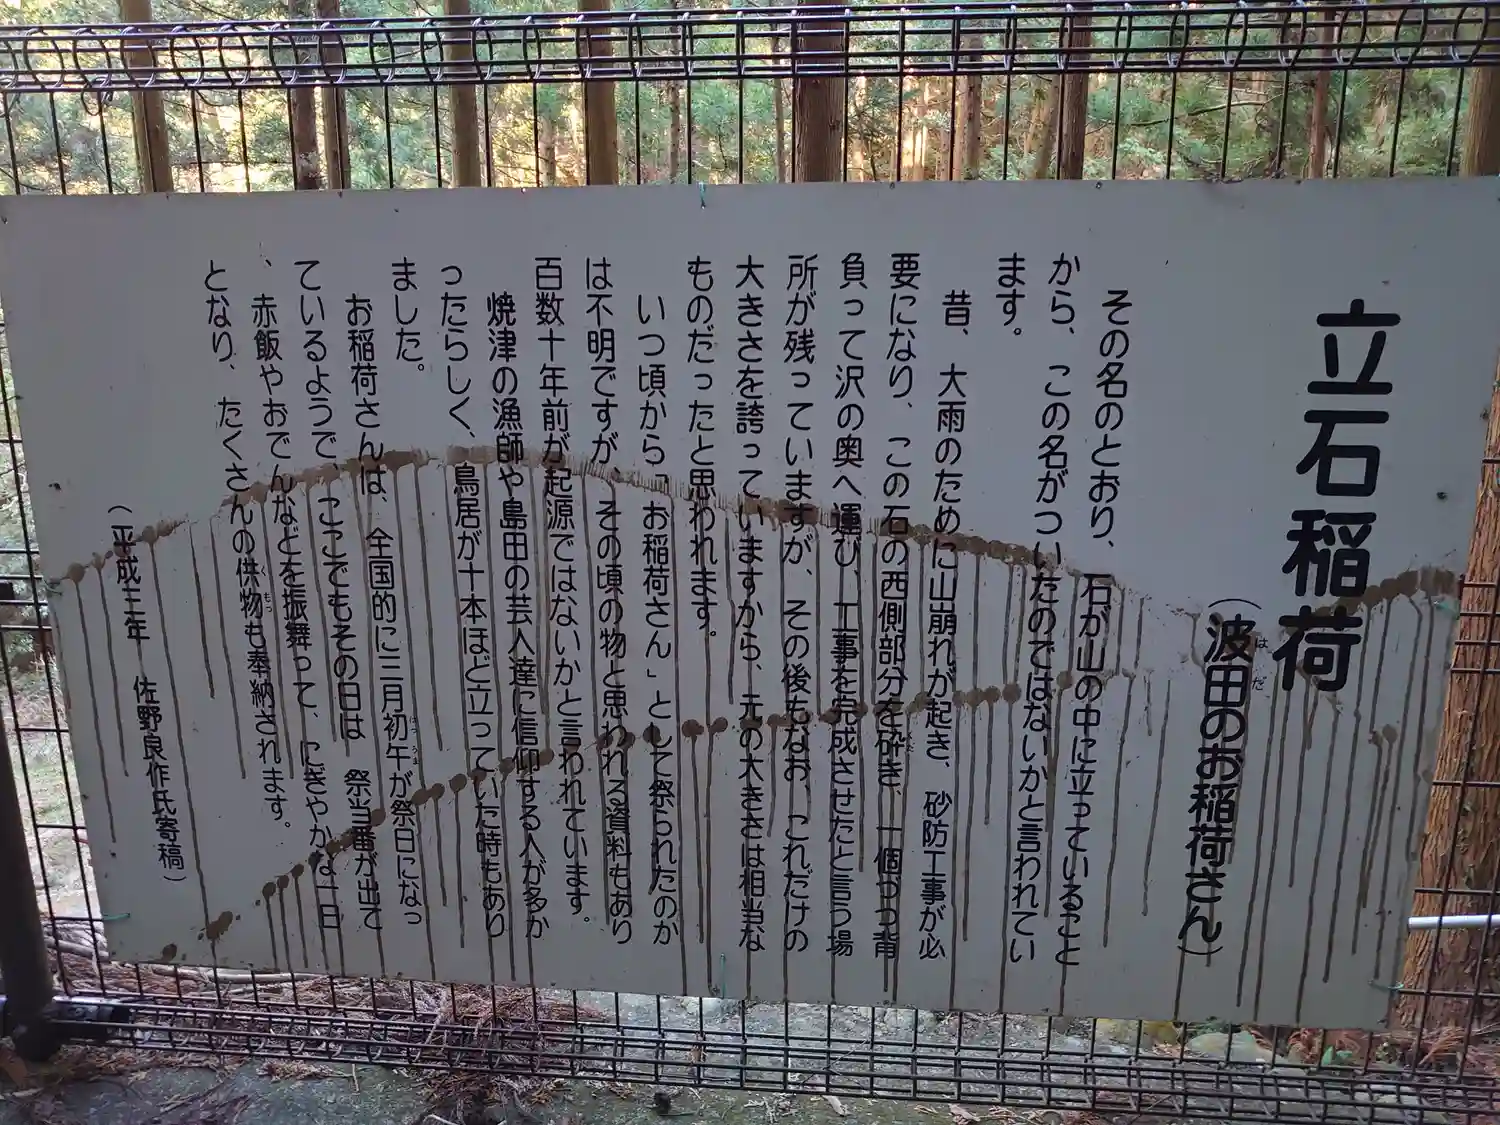 立石稲荷
(波田のお稲荷さん)
はだ
その名のとおり、石が山の中に立っていること
から、この名がついたのではないかと言われてい
ます。
昔、大雨のために山崩れが起き、砂防工事が必
要になり、この石の西側部分を砕き、一個づつ背
負って沢の奥へ運び、工事を完成させたと言う場
所が残っていますが、その後もなお、これだけの
大きさを誇っていますから、元の大きさは相当な
ものだったと思われます。
いつ頃から「お稲荷さん」として祭られたのか
は不明ですが、その頃の物と思われる資料もあり
百数十年前が起源ではないかと言われています。
焼津の漁師や島田の芸人達に信仰する人が多か
ったらしく、鳥居が十本ほど立っていた時もあり
ました。
お稲荷さんは、全国的に三月初午が祭日になっ
はつうま
ているようで、ここでもその日は 祭当番が出て
、赤飯やおでんなどを振舞って、にぎやかな一日
となり、たくさんの供物も奉納されます。
くもつ
(平成三年 佐野良作氏寄稿)